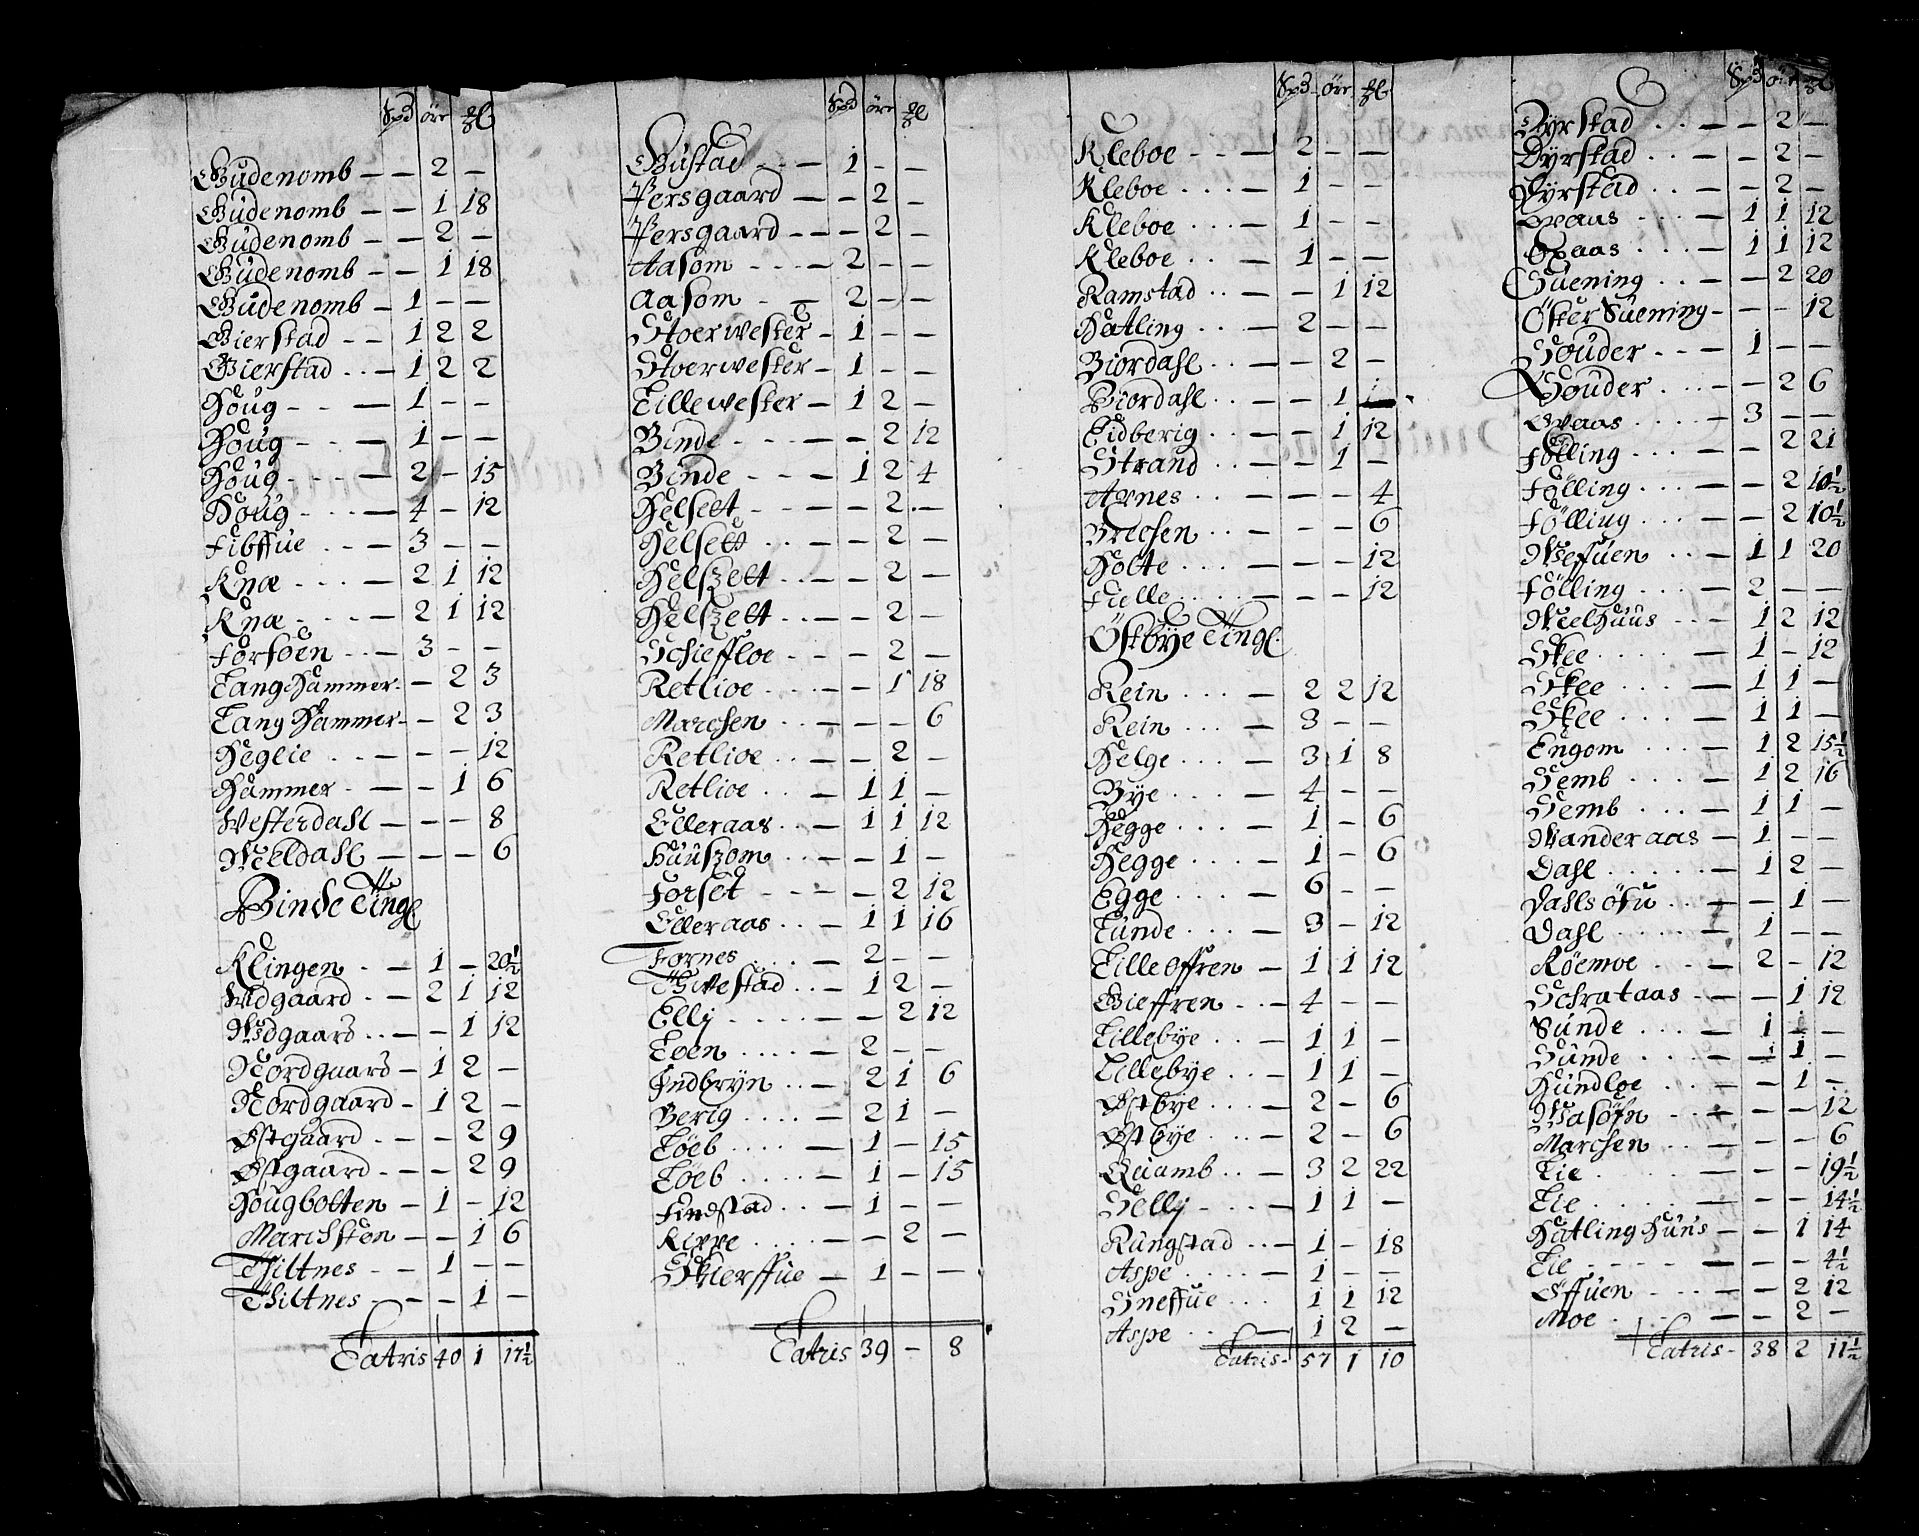 Spd öre
Gudenomb — — 2 —
Gudenomb — — 1 18
Gudenomb — — 2 —
Gudenomb — — 1 18
Gudenomb — 1 — —
Gierstad - - 1 2 2
Gierstad . . — 1 2 2
Houg - - — 1 - -
Houg - - - — 1 - —
Houg - - - — 2 - 15
Houg . . . — 4 - 12
Fibffue . . . — 3 — —
Knæ . . . . — 2 1 12
Knæ - . . . — 2 1 12
Forsoen . . — 3 — —
Langhammer - — 2 3
Langhammer - - 2 3
Heglie . . — — — 12
Hammer - — - 1 6
Westerdahl — — — 8
Weldahl — — — 6
Binde Tingl
Klingen . . — 1 — 20½
Widgaard . — 2 1 12
Widgaard . . — — 1 12
Nordgaard — 1 2 —
Nordgaard - 1 2 —
Østgaard . — - 2 9
Østgaard - — - 2 9
Hougbolten — 1 — 12
Marchsten — — 1 6
Thiltnes - - 1 — —
Thiltnes — — 1 —
Latris 40 1 17½
Spd öre
Gustad - - — 1 — —
Persgaard — — 2 —
Persgaard — — 2 —
Aasom - - - — 2 — —
Aasom - — 2 — —
Stoerwester — 1 — —
Stoerwester — 1 — —
Lillewester — 1 2 —
Binde - - - — — 2 12
Binde - - - — 1 2 4
Helsett - — — 2 . —
Helsett . . — — 2 —
Helszett . . — — 2 —
Helszett - . — — 2 —
Schieffloe - - — 2 —
Retlioe . . — — 1 18
Marchsen . . — — — 6
Retlioe . . — — 2 —
Retlioe . . — 1 1 —
Elleraas . . — 1 1 12
Huuszom . . — — 1 —
Forset - - — — 2 12
Elleraas . . — 1 1 16
Fornes . . — 2 — —
Thwestad . . — 1 2 —
Ellj . . . . — — 2 12
Loen . . . . — 2 — —
Indbryn . . — 2 1 6
Berig . . . . — 2 1 —
Löeb . . . — 1 — 15
Löeb . . — 1 — 15
Findstad . . — 1 — —
Kirve . . . . — — 2 —
Skierffue — 1 — —
Latris 39 — 8
Spd öre
Kleboe - - — 2 — —
Kleboe . . . — 1 — —
Kleboe . . . — 1 — —
Kleboe . . — 1 — —
Ramstad . . — — 1 12
Hatling . . — 2 — —
Biordahl . . — — 2 —
Biordahl . . — — 1
Eidberig . — — 1 12
Strand . . — — 1 —
Arnes . . — — — 4
Brechsen . . — — — 6
Holte . . . — — — 12
Fielle . . . . — — — 12
Östbÿe Tingl.
Rein . . . . — 2 2 12
Rein . . . . — 3 — —
Helge . . . — 3 1 8
Bye . . . . — 4 — —
Hegge . . . — 1 — 6
Hegge . . . — 1 — 6
Egge . . . . — 6 — —
Lunde . . . — 3 — 12
Lille Offren — 1 1 12
Gieffren . . — 4 — —
Lillebye . . — 1 1 —
Lillebye . . — 1 1 —
Østbye . . . — 2 — 6
Østbye . . — 2 — 6
Quamb . . — 3 2 22
Sellj - . . . — 1 1 —
Rungstad . . — 1 — 18
Aspe . . . . — 1 — —
Sneffue . . . 1 2 12
Aspe . . . — 1 2 —
Latris - 57 1 10
Spd öre
Dyrstad . . — — 2 —
Dyrstad . . — — 2 —
Dyrstad . . — — 2 —
Oxaas . . . — 1 1 12
Oxaas . . . — 1 1 12
Suening . . . — — 2 20
Öster Suening - — — 12
Souder . . . — 1 — —
Souder . . . — — 2 6
Waas . . . . — 3 — —
Fölling . . . — — 2 21
Fölling . . . — — 2 10½
Fölling . . . — — 2 10½
Weffuen . . — 1 1 20
Fölling . . . — 2 — —
Weelhuus . . — 1 2 12
Skee . . . . — 1 — 12
Skee . . . . — 1 1 —
Skee . . . . — 1 1 —
Engom . . . — 1 2 15½
Semb . . . — 1 2 16
Semb . . . — 1 1 —
Wanderaas — 1 — —
Dahl . . . . . — 1 2 —
Dahls östu . . — — 1 —
Dahl . . . . — 1 — —
Röemoe . . — 2 — 12
Schrataas — — 1 12
Sunde . . . — 1 — —
Sunde . . . — 1 —
Hundloe . . — — 1 —
Wasöfn . . — — — 12
Marchsen . . — — — 6
Lie . . . . — — — 19½
Lie . . . . . — — — 14½
Hatlinghuus — — 1 14
Lie - - - - — — — 4½
Öffuen . . . — — 2 12
Moe . . . . — — 2 —
Latris - 38 2 11½